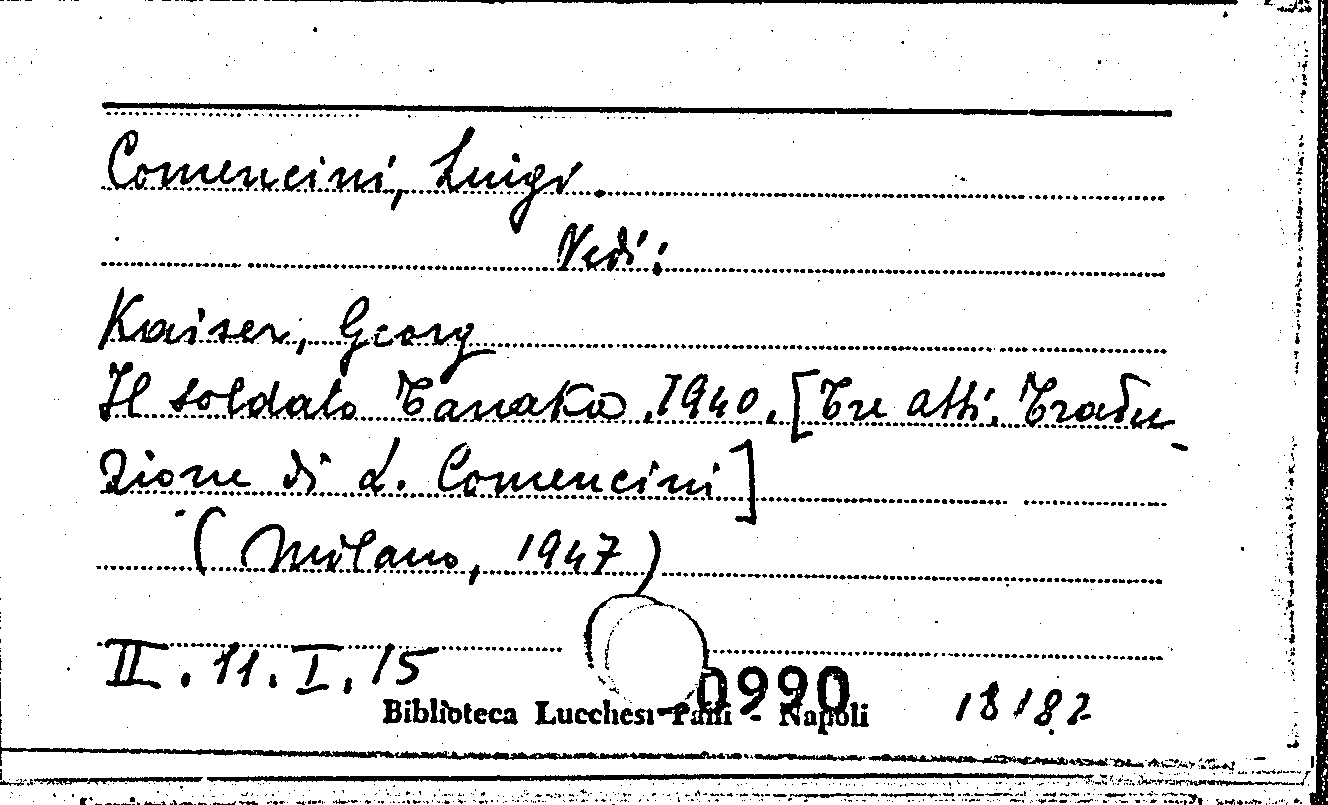 Comencini, Luigi.
Vedi:
Kaiser, Georg
Il soldato Tanaka. 1940. [Tre atti. Tradu-
zione di L. Comencini]
(Milano, 1947)
II. 11. I. 15
0990
Biblioteca Lucchesi-Palli - Napoli
18182